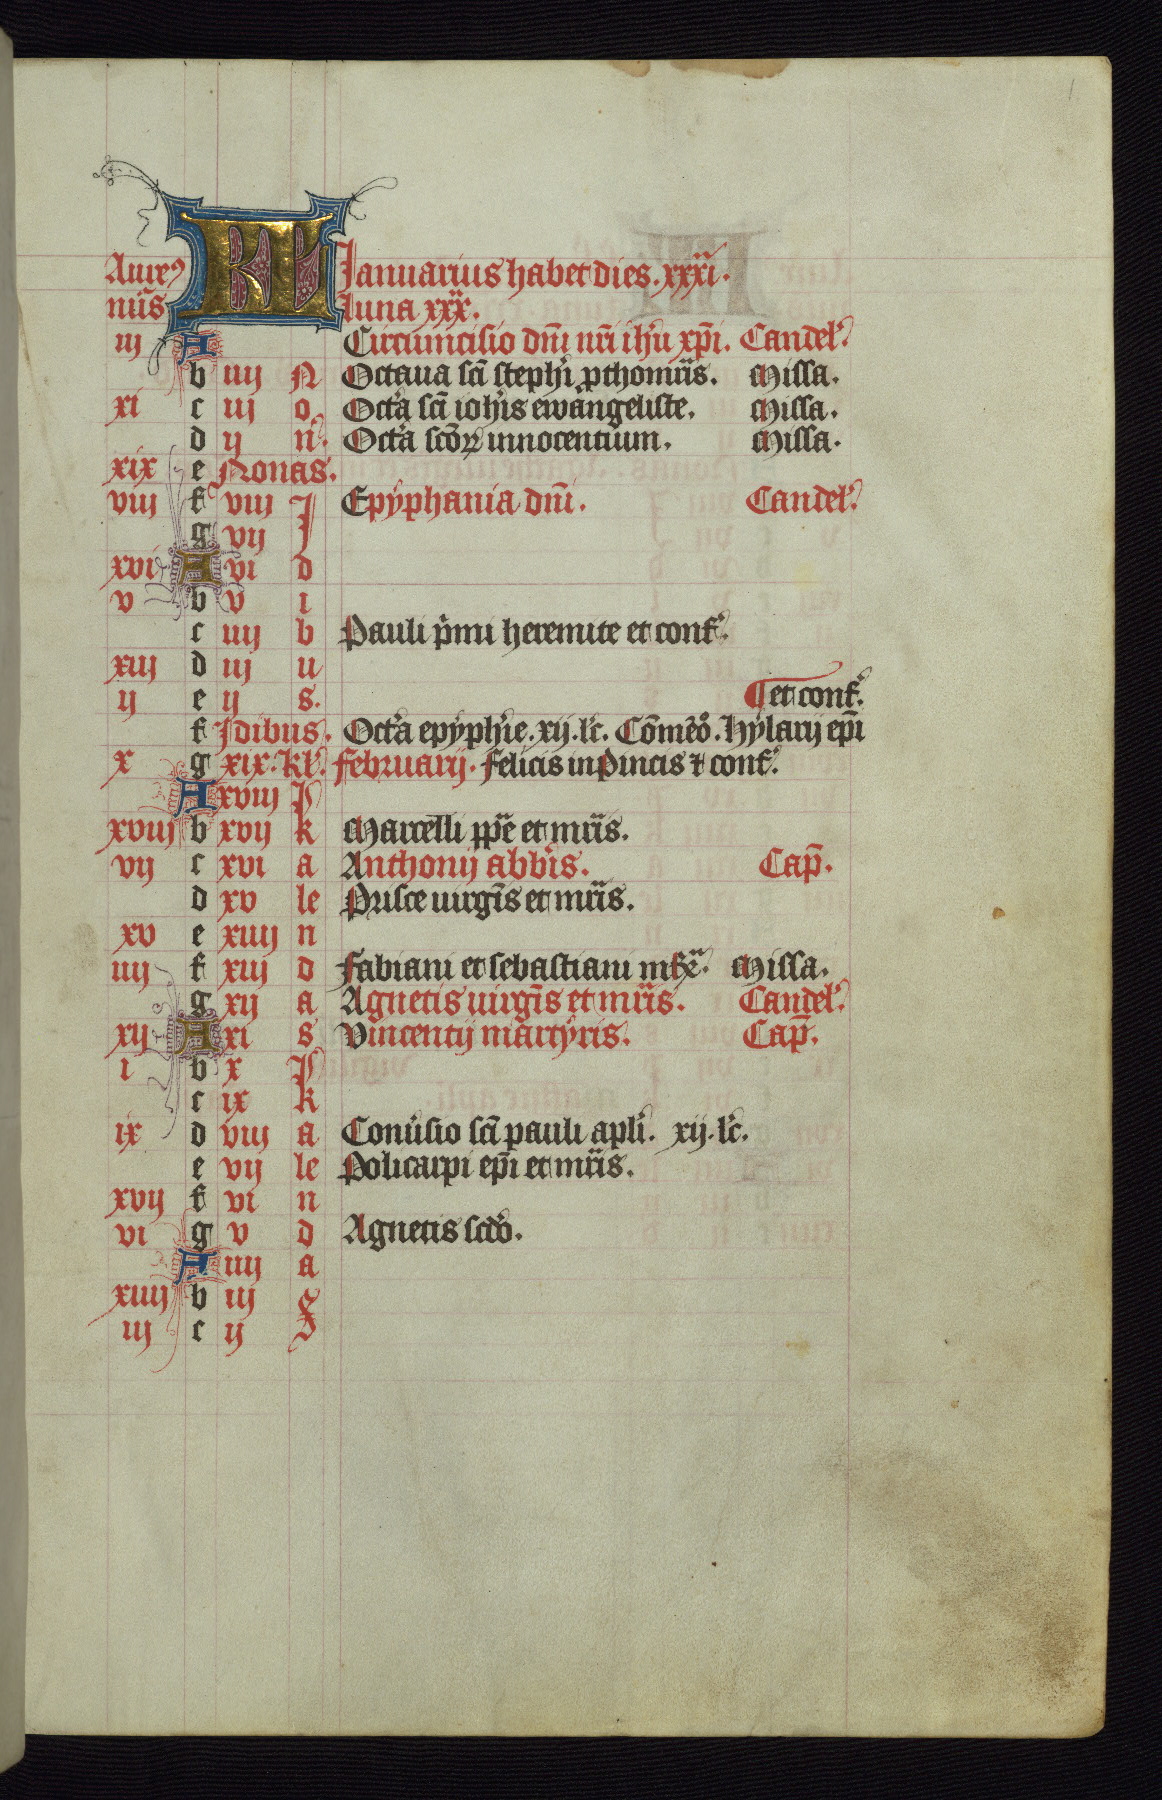 1
Aure9 KL Januarius habet dies. xxxi.
nus luna xxx.
iij A Circumcisio dni nri ihu xpi. Candel'
b iiij N Octaua sci stephi pthomris. Missa.
xi c iij o Octa sci iohis ewangeliste. Missa.
d ij n. Octa scor innocentium. Missa.
xix e Nonas.
viij f viij J Epyphania dni. Candel'
g vij J
xvi A vi d
v b v i
c iiij b Pauli pmi heremite et conf'.
xiij d iij u
ij e ij s. et conf'.
f Jdibus. Octa epyphie. xij. lc. Comeo. Hylarij epi
x g xix. kl'. februarij. felicis in pincis et conf'.
A xviij P
xviij b xvij k Marcelli ppe et mris.
vij c xvi a Anthonij abbis. Cap.
d xv le Prisce uirgis et mris.
xv e xiiij n
iiij f xiij d Fabiani et sebastiani Missa.
g xij a Agnetis uirgis et mris. Candel'
xij A xi s Vincentij martyris. Cap.
i b x P
c ix k
ix d viij a Conusio sci pauli apli. xij. lc.
e vij le Policarpi epi et mris.
xvij f vi n
vi g v d Agnetis scdo.
A iiij a
xiiij b iij F
iij c ij